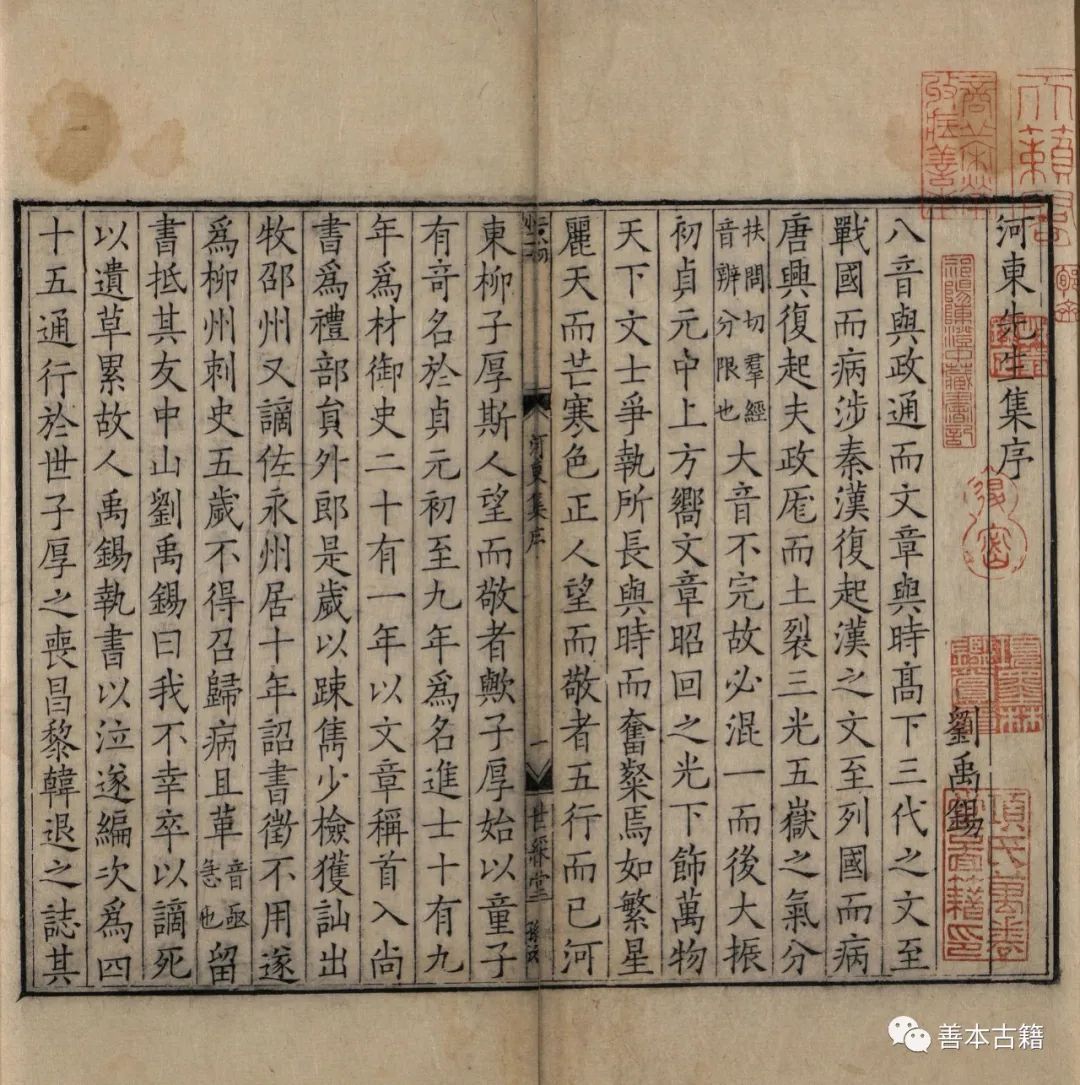 河東先生集序
劉禹錫
八音與政通而文章與時髙下三代之文至
戰國而病涉秦漢復起漢之文至列國而病
唐興復起夫政厖而土裂三光五嶽之氣分
扶問切羣經
音辨分限也
大音不完故必混一而後大振
初貞元中上方嚮文章昭回之光下飾萬物
天下文士爭執所長與時而奮粲焉如繁星
麗天而芒寒色正人望而敬者五行而已河
河東集序
一
世綵堂
東柳子厚斯人望而敬者歟子厚始以童子
有竒名於貞元初至九年為名進士十有九
年為材御史二十有一年以文章稱首入尚
書為禮部負外郎是歲以踈雋少檢獲訕出
牧邵州又謫佐永州居十年詔書徵不用遂
為柳州刺史五歲不得召歸病且革
音亟
急也
留
書抵其友中山劉禹錫曰我不幸卒以謫死
以遺草累故人禹錫執書以泣遂編次為四
十五通行於世子厚之喪昌黎韓退之誌其
項氏萬卷
善本古籍